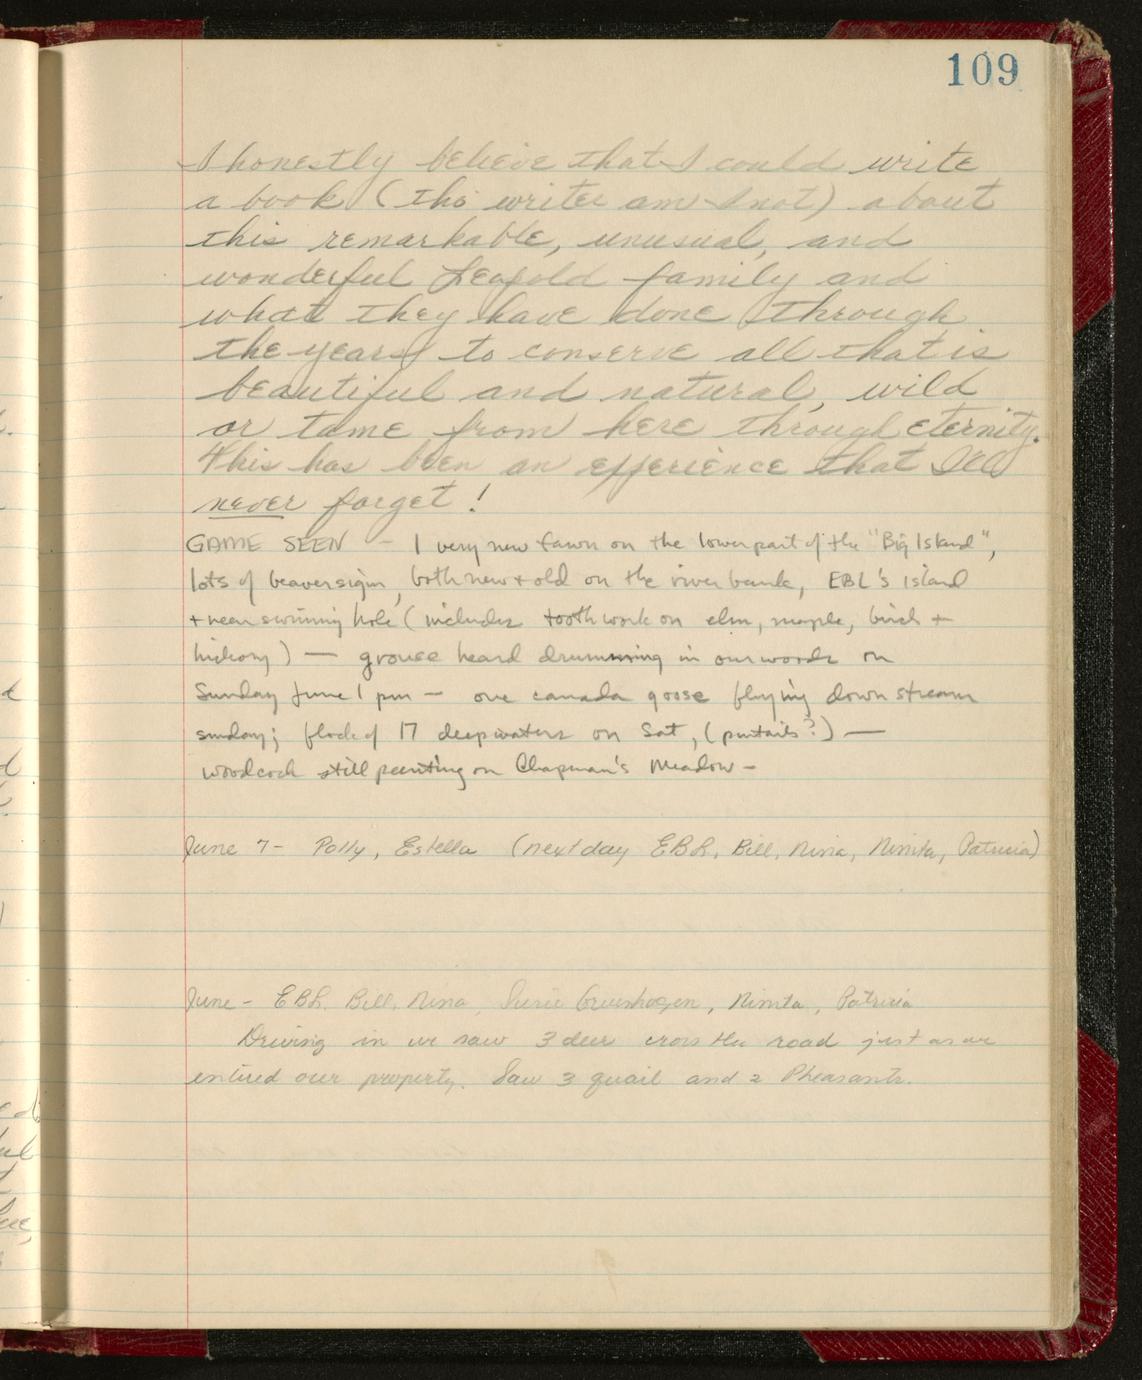 109
I honestly believe that I could write
a book (tho writer am I not) about
this remarkable, unusual, and
wonderful Leopold family and
what they have done through
the years to conserve all that is
beautiful and natural, wild
or tame from here through eternity.
This has been an experience that I'll
never forget!
GAME SEEN - 1 very new fawn on the lower part of the "Big Island",
lots of beaver sign, both new + old on the river bank, EBL's Island
+ near swimming hole (includes tooth work on elm, maple, birch +
hickory) — grouse heard drumming in our woods on
Sunday June 1 pm — one canada goose flying down stream
sunday; flock of 17 deepwaters on Sat, (pintails?) —
woodcock still peenting on Chapman's Meadow -
June 7 - Polly, Estella (next day EBL, Bill, Nina, Nimita, Patricia)
June - EBL, Bill, Nina, Susie Gruenhagen, Nimita, Patricia
Driving in we saw 3 deer cross the road just as we
entered our property. Saw 3 quail and 2 Pheasants.